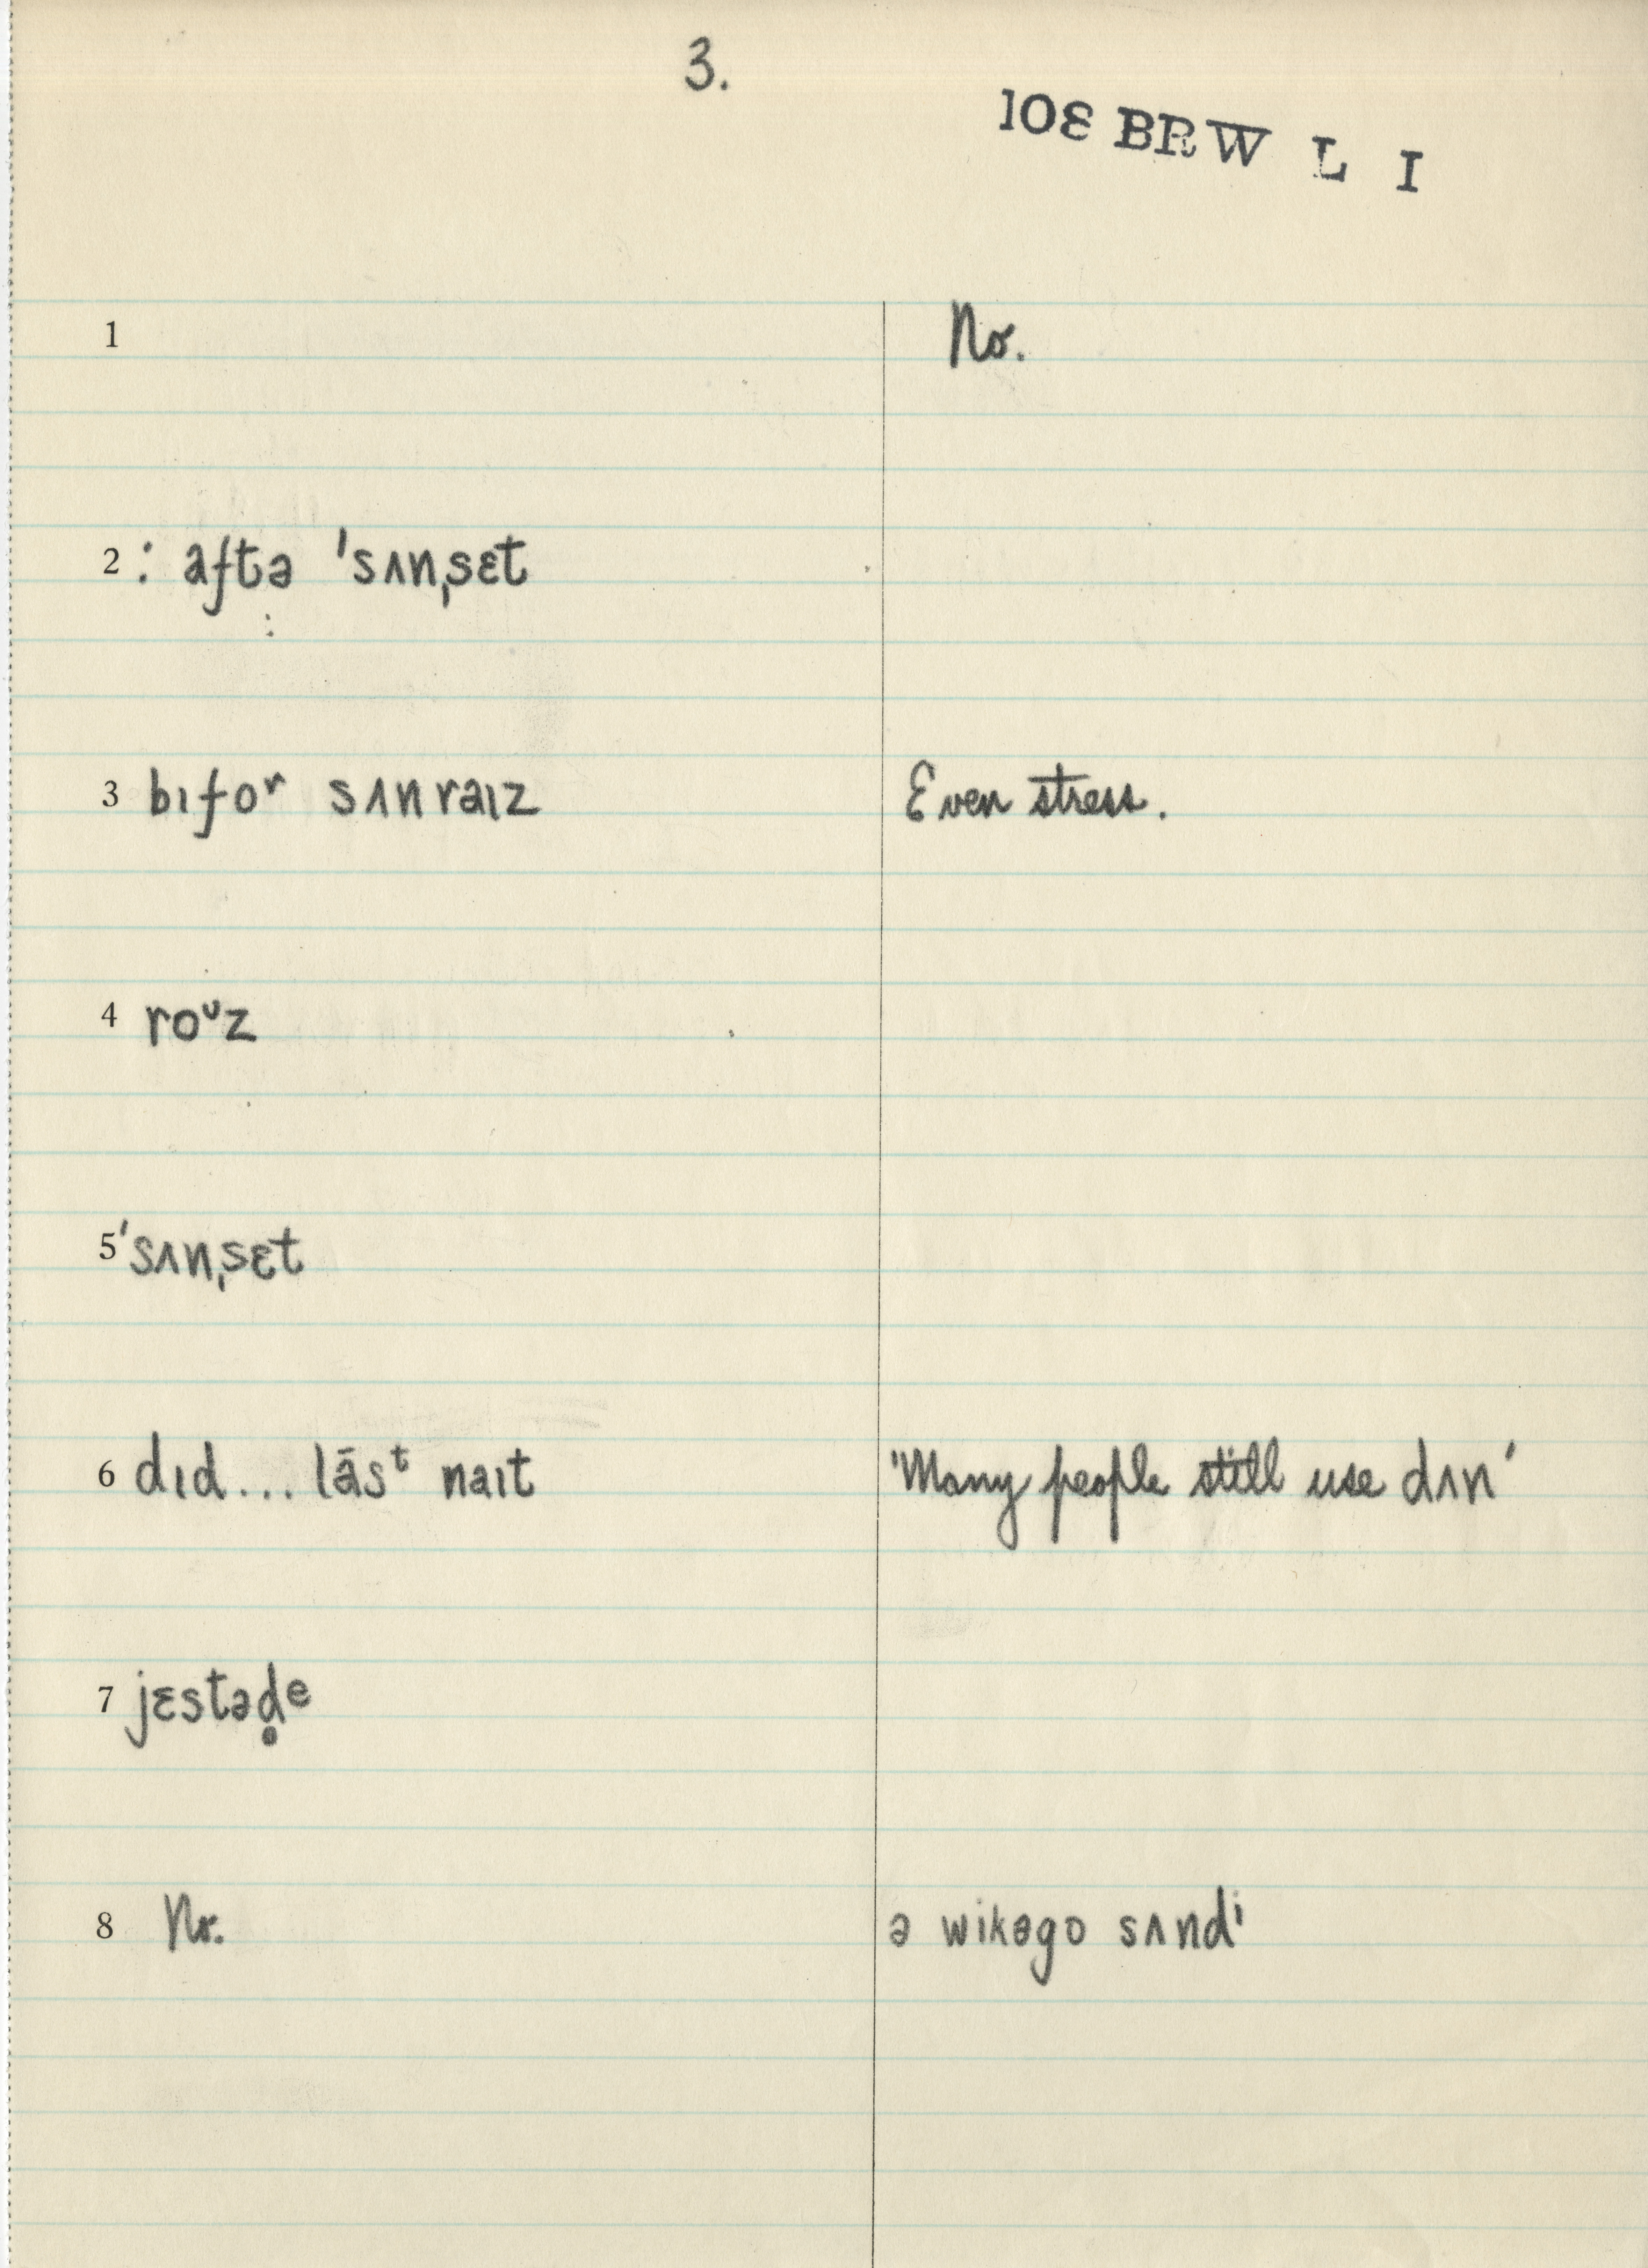 3.
108 BRW L I
1 No.
2 : aftə 'sʌnˌsɛt
3 bɪfoʳ sʌnraɪz Even stress.
4 roᶷz
5 'sʌnˌsɛt
6 dɪd... lāsᵗ naɪt 'Many people still use dʌn'
7 jɛstəd̥ᵉ
8 Nr. ə wikəgo sʌndⁱ